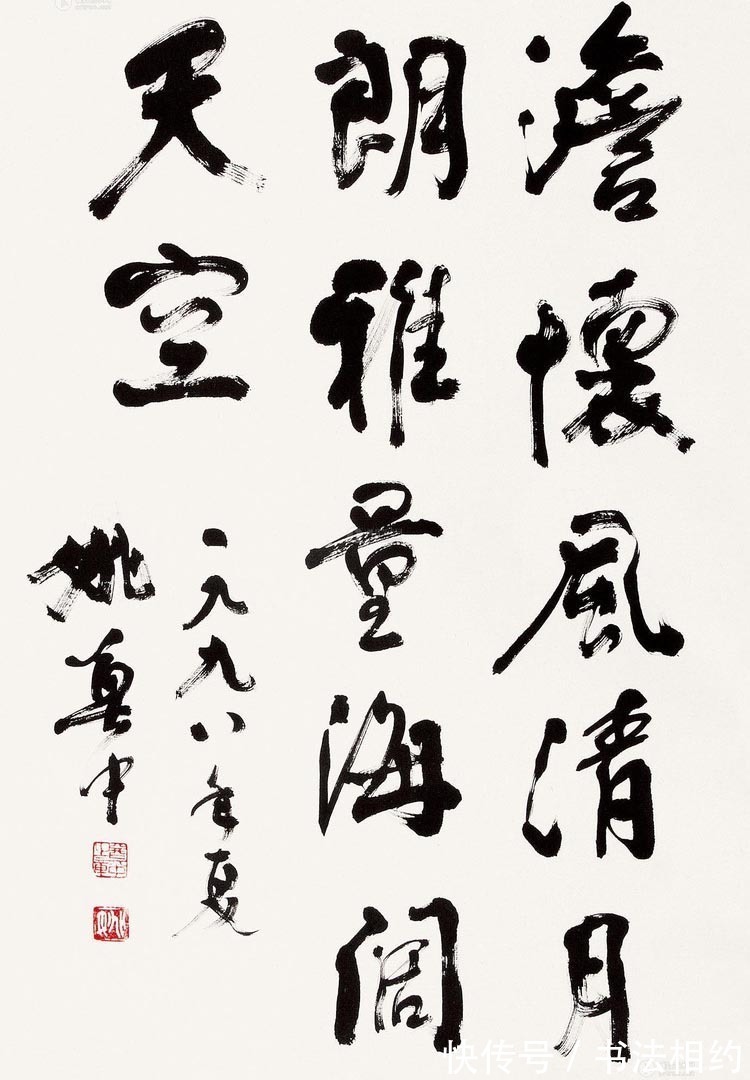 澹懷風清月
朗雅量海闊
天空
一九九八年夏
姚奠中
快传号 / 书法相约